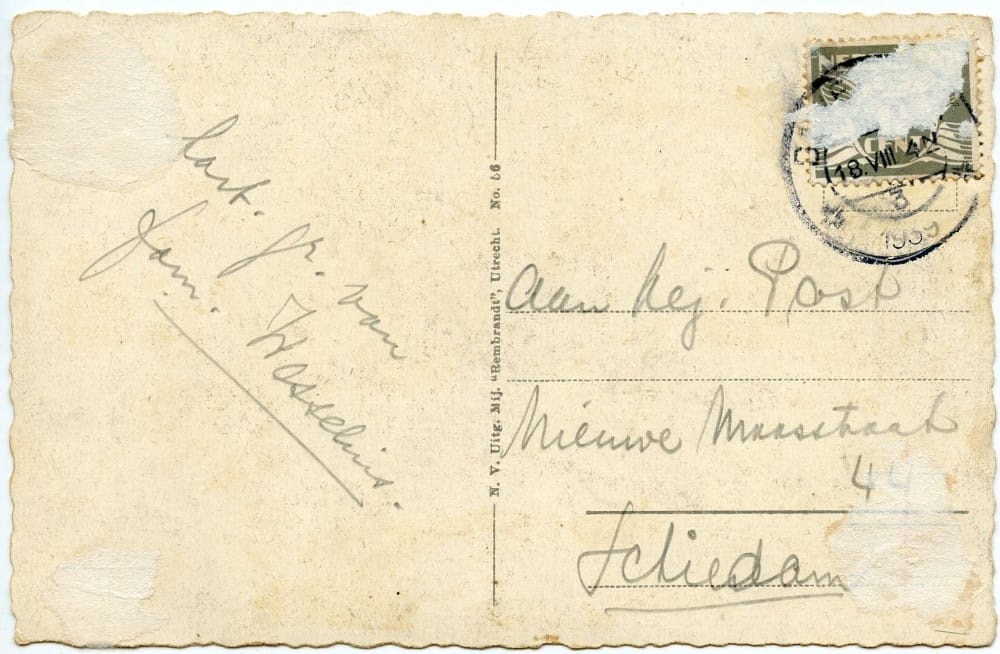 Hart. Gr. van
Fam. Hasselius.
N. V. Uitg. Mij. "Rembrandt", Utrecht. No. 66
NE
18.VIII 4N
3
1939
Aan Mej. Post
Nieuwe Maasstraat
44
Schiedam